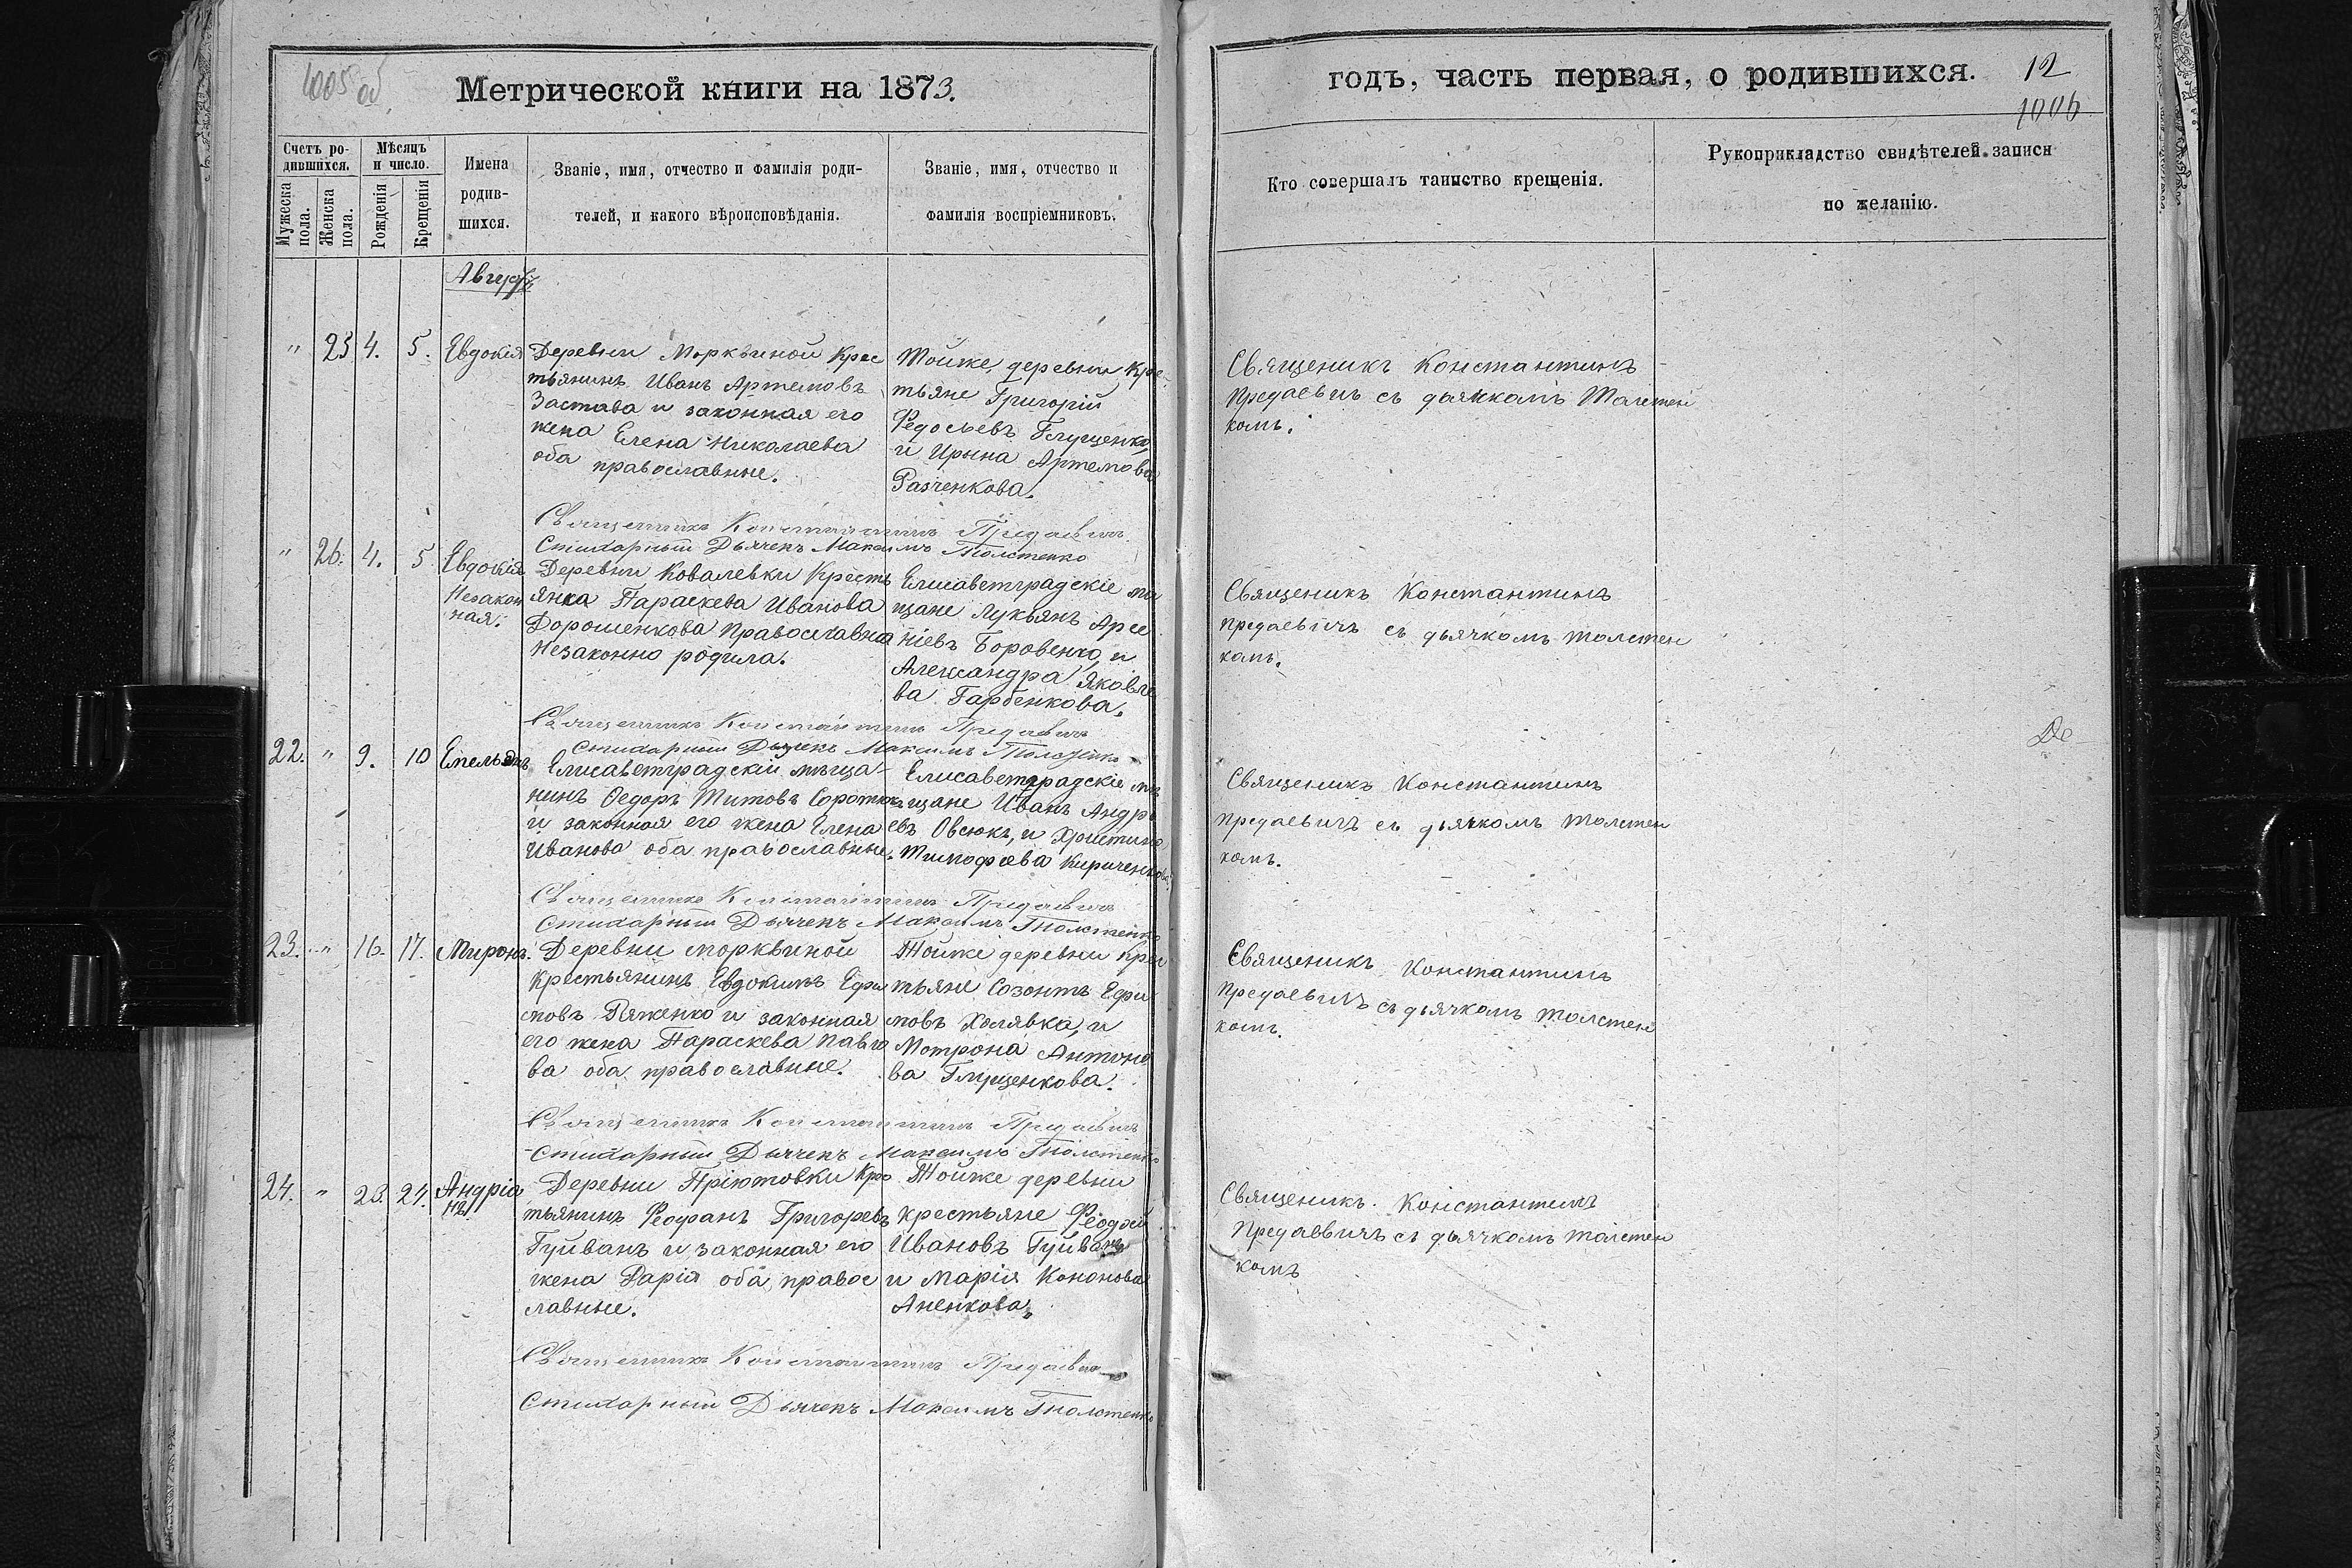 Метрической книги на 1873.
годъ, часть первая, о родившихся.
12
1006
Счетъ ро-
дившихся.
Мѣсяцъ
и число.
Мужеска пола.
Женска пола.
Рожденія
Крещенія
Имена
родив-
шихся.
Званіе, имя, отчество и фамилія роди-
телей, и какого вѣроисповѣданія.
Званіе, имя, отчество и
фамилія воспріемниковъ.
Кто совершалъ таинство крещенія.
Рукоприкладство свидѣтелей записи
по желанію.
Августъ
" 25 4. 5. Евдокія
Деревни Морквиной Крес
тьянинъ Иванъ Артемовъ
Застава и законная его
жена Елена Николаева
оба православные.
Тойже деревни Кре
тьяне Григорій
Федосьевъ Глущенко,
и Ирына Артемова
Разченкова.
Священикъ Константинъ
Предаевичь съ дьячкомъ Толстен
комъ.
Священникъ Константинъ Предаевичъ
Стихарный Дьячекъ Максимъ Толстенко
" 26. 4. 5 Евдокія
Незакон
ная.
Деревни Ковалевки Кресть
янка Параскева Иванова
Дорошенкова Православная
Незаконно родила.
Елисаветградскіе мѣ
щане Лукьянъ Арсе
ніевъ Боровенко, и
Александра Яковле
ва Гарбенкова.
Священикъ Константинъ
Предаевичъ съ дьячкомъ Толстен
комъ.
Священникъ Константинъ Предаевичъ
Стихарный Дьячекъ Максимъ Толстенко
22. " 9. 10 Емельянъ
Елисаветградскій мѣща-
нинъ Федоръ Титовъ
и законная его жена Елена
Иванова оба православные.
Елисаветградскіе мѣ
щане Иванъ Андре
евъ Овсюкъ, и Христина
Тимофѣева Кириченкова
Священикъ Константинъ
Предаевичъ съ дьячкомъ Толстен
комъ.
Священникъ Константинъ Предаевичъ
Стихарный Дьячекъ Максимъ Толстенко
23. " 16. 17. Миронъ.
Деревни Морквиной
Крестьянинъ Евдокимъ Ефи
мовъ Ряженко и законная
его жена Параскева Павло
ва оба православные.
Тойже деревни Крес
тьяне Созонтъ Ефи
мовъ Холявка, и
Мотрона Антоно
ва Глущенкова.
Священикъ Константинъ
Предаевичъ съ дьячкомъ Толстен
комъ.
Священникъ Константинъ Предаевичъ
Стихарный Дьячекъ Максимъ Толстенко
24. " 23. 24. Андріа
нъ
Деревни Пріютовки Крес
тьянинъ Феофанъ Григорьевъ
Гуйванъ и законная его
жена Дарія оба правос
лавные.
Тойже деревни
крестьяне Феодосій
Ивановъ Гуйванъ
и Марія Кононова
Аненкова.
Священикъ Константинъ
Предаевичъ съ дьячкомъ Толстен
комъ
Священникъ Константинъ Предаевичъ
Стихарный Дьячекъ Максимъ Толстенко